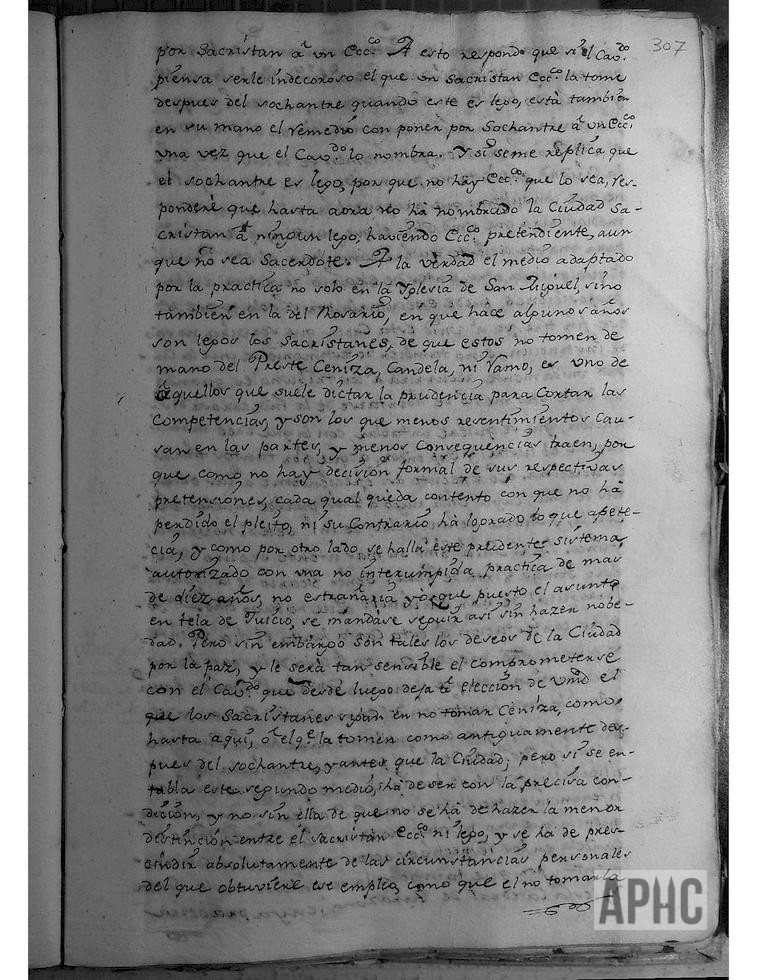 307
por Sacristan a un Ecc.co A esto respondo que si el Cav.do
piensa serle indecoroso el que un Sacristan Ecc.co la tome
despues del sochantre quando este es lego, està tambien
en su mano el remedio con poner por Sochantre â un Ecc.co
una vez que el Cav.do lo nombra. Y si se me replica que
el sochantre es lego, por que no hay Ecc.co que lo sea, res-
ponderè que hasta aora no hà nombrado la Ciudad Sa-
cristan â ningun lego, haviendo Ecc.co pretendiente, aun
que no sea Sacerdote. A la verdad el medio adaptado
por la practica no solo en la Yglesia de San Miguel, sino
tambien en la del Rosario, en que hàce algunos años
son legos los Sacristanes, de que estos no tomen de
mano del Preste Ceniza, Candela, ni ramo, es uno de
aquellos que suele dictar la prudencia para Cortar las
Competencias, y son los que menos resentimientos Cau-
san en las partes, y menos Consequencias traen, por
que como no hay decision formal de sus respectivas
pretensiones, cada qual queda contento con que no hà
perdido el pleito, ni su Contrario hà logrado lo que apete-
cia, y como por otro lado se halla este prudente sistema
autorizado con una no interrumpida practica de mas
de diez años, no estrañaria yo que puesto el asunto
en tela de Juicio, se mandàse seguir asi sin hazer nobe-
dad. Pero sin embargo son tales los deseos de la Ciudad
por la paz, y le serà tan sensible el comprometerse
con el Cav.do que desde luego deja â eleccion de Vmd el
que los Sacristanes sigan en no tomar Ceniza, como
hasta aqui, o el q.e la tomen como antiguamente des-
pues del sochantre, y antes que la Ciudad; pero si se en-
tabla este segundo medio, hà de ser con la precisa con-
dicion, y no sin ella de que no se hà de hazer la menor
destincion entre el sacristan Ecc.co ni lego, y se hà de pres-
cindir absolutamente de las circunstancias personales
del que obtuviere ese empleo, como que el no tomarla
APHC